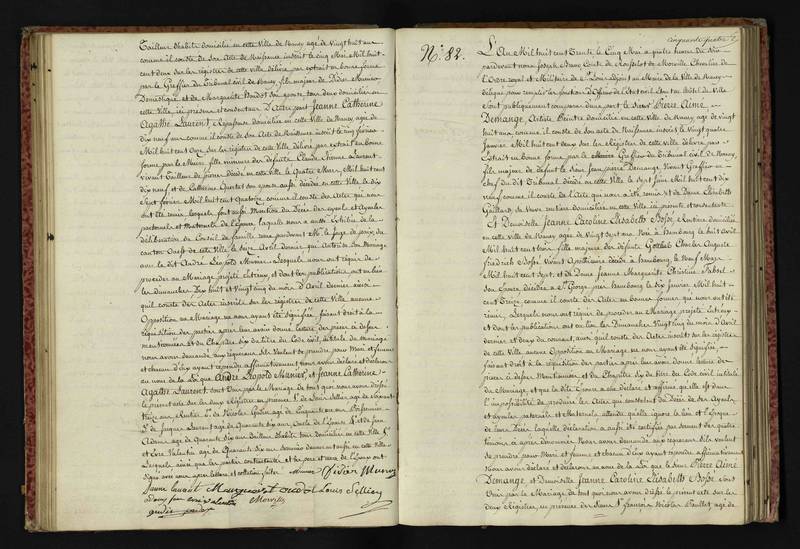 Tailleur d'habits domicilié en cette Ville de Nancy agé de Vingt huit ans
comme il conste de son Acte de Naissance inscrit le cinq Mai Mil huit
cent deux sur les registres de cette Ville délivré par extrait en bonne forme
par le Greffier du Tribunal civil de Nancy, fils majeur de Didier Munier
Domestique et de Marguerite son épouse tous deux domiciliés en
cette Ville, ici présens et consentans D'autre part Jeanne Catherine
Agathe Laurent, Repasseuse domiciliée en cette Ville de Nancy agée de
dix neuf ans comme il conste de son Acte de Naissance inscrit le cinq février
Mil huit cent onze sur les registres de cette Ville délivré par extrait en bonne
forme par le Maire, fille mineure des défunts Claude Etienne Laurent
vivant Tailleur de pierres décédé en cette Ville le Quatre Mars Mil huit cent
dix neuf et de Catherine son épouse aussi décédée en cette Ville le dix
Sept février Mil huit cent Quatorze comme il conste des Actes qui nous
ont été remis, lesquels font aussi Mention du Décès des ayeuls et Ayeules
paternels et Maternels de l'épouse, laquelle nous a aussi exhibé de la
délibération du Conseil de famille tenu pardevant Mr. le Juge de paix du
canton Ouest de cette Ville le Seize Avril dernier qui Autorise son Mariage
avec le dit André Léopold Munier. Lesquels nous ont requis de
procéder au Mariage projeté entr'eux, et dont les publications ont eu lieu
les dimanches Dix huit et Vingt cinq du mois d'Avril dernier ainsi
qu'il conste des Actes inscrits sur les registres de cette Ville aucune
Opposition au Mariage ne nous ayant été Signifiée, faisant droit à la
réquisition des parties après leur avoir donné lecture des pièces ci dessus
mentionnées et du Chapitre Six du titre du Code civil, intitulé du Mariage
nous avons demandé aux requérans S'ils Veulent se prendre pour Mari et femme
et chacun d'eux ayant répondu affirmativement nous avons déclaré et déclarons
au nom de la Loi que André Léopold Munier, et Jeanne Catherine
Agathe Laurent, sont Unis par le Mariage de tout quoi nous avons dressé
le présent acte sur les deux Registres en présence
de Nicolas agé de Cinquante
de Jacques Laurent agé de Quarante Six ans Oncle de l'épouse
agé de Quarante Six ans Tailleur d'habits tous domiciliés en cette Ville
et Evre Valentin agé de Quarante Six ans demeurant aussi en cette Ville
Lesquels, ainsi que les parties contractantes et les père et mère de l'époux ont
Signé avec nous après lecture et collation faite. Munier Didier Munier
Jeanne laurent Louis
evre valentin Morville
N.° 82.
cinquante quatre
L'An Mil huit cent Trente le Cinq Mai à quatre heures du Soir
pardevant nous Joseph Comte de Rousselot de Morville Chevalier de
l'Ordre royal et Militaire de St Louis Adjoint au Maire de la Ville de Nancy
délégué pour remplir les fonctions d'Officier de l'état civil, En l'hôtel de Ville
Sont publiquement comparus d'une part le Sieur Pierre Aimé
Demange, Artiste Peintre domicilié en cette Ville de Nancy agé de Vingt
huit ans comme il conste de son acte de Naissance inscrit le Vingt quatre
Janvier Mil huit cent deux sur les Registres de cette Ville délivré par
Extrait en bonne forme par le Greffier du Tribunal civil de Nancy,
fils majeur de défunt le Sieur Jean pierre Demange Vivant Greffier en
chef du dit Tribunal décédé en cette Ville le Sept Juin Mil huit cent dix
neuf comme il conste de l'Acte qui nous a été remis et de Dame Elisabeth
Gaillard, sa Veuve rentière domiciliée en cette Ville ici présente et consentante
Et Demoiselle Jeanne Caroline Elisabeth Bossé Rentière domiciliée
en cette Ville de Nancy agée de Vingt Sept ans Née à hambourg le huit Avril
Mil huit cent trois, fille majeure des défunts Gottlieb Charles Auguste
Friedrich Bossé Vivant Apothicaire décédé à hambourg, le Neuf Mars
Mil huit cent sept, et de Dame Jeanne Marguerite Christine
son Epouse, décédée à St George près hambourg le dix Janvier Mil huit
cent Treize, comme il conste des Actes en bonnes formes qui nous ont été
remis, Lesquels nous ont requis de procéder au Mariage projeté entr'eux
et dont les publications ont eu lieu les Dimanches Vingt cinq du mois d'Avril
dernier et deux du courant, ainsi qu'il conste des Actes inscrits sur les registres
de cette Ville aucune Opposition au Mariage ne nous ayant été signifiée,
faisant droit à la réquisition des parties après leur avoir donné lecture des
pièces ci dessus Mentionnées et du Chapitre Six du titre du Code civil intitulé
du Mariage, et que la dite Epouse a aussi déclaré et affirmé qu'elle est dans
l'impossibilité de produire les Actes qui constatent du décès de ses Ayeuls
et ayeules paternels et Maternels attendu qu'elle ignore le lieu et l'époque
de leur Décès laquelle déclaration a aussi été certifiée par serment des quatre
témoins ci après dénommés Nous avons demandé aux requérans S'ils veulent
se prendre pour Mari et femme et chacun d'eux ayant répondu affirmativement
Nous avons déclaré et déclarons au nom de la Loi que le Sieur Pierre Aimé
Demange, et Demoiselle Jeanne Caroline Elisabeth Bossé Sont
Unis par le Mariage de tout quoi nous avons dressé le présent acte sur les
deux Registres, en présence des Sieurs 1.° françois Nicolas agé de